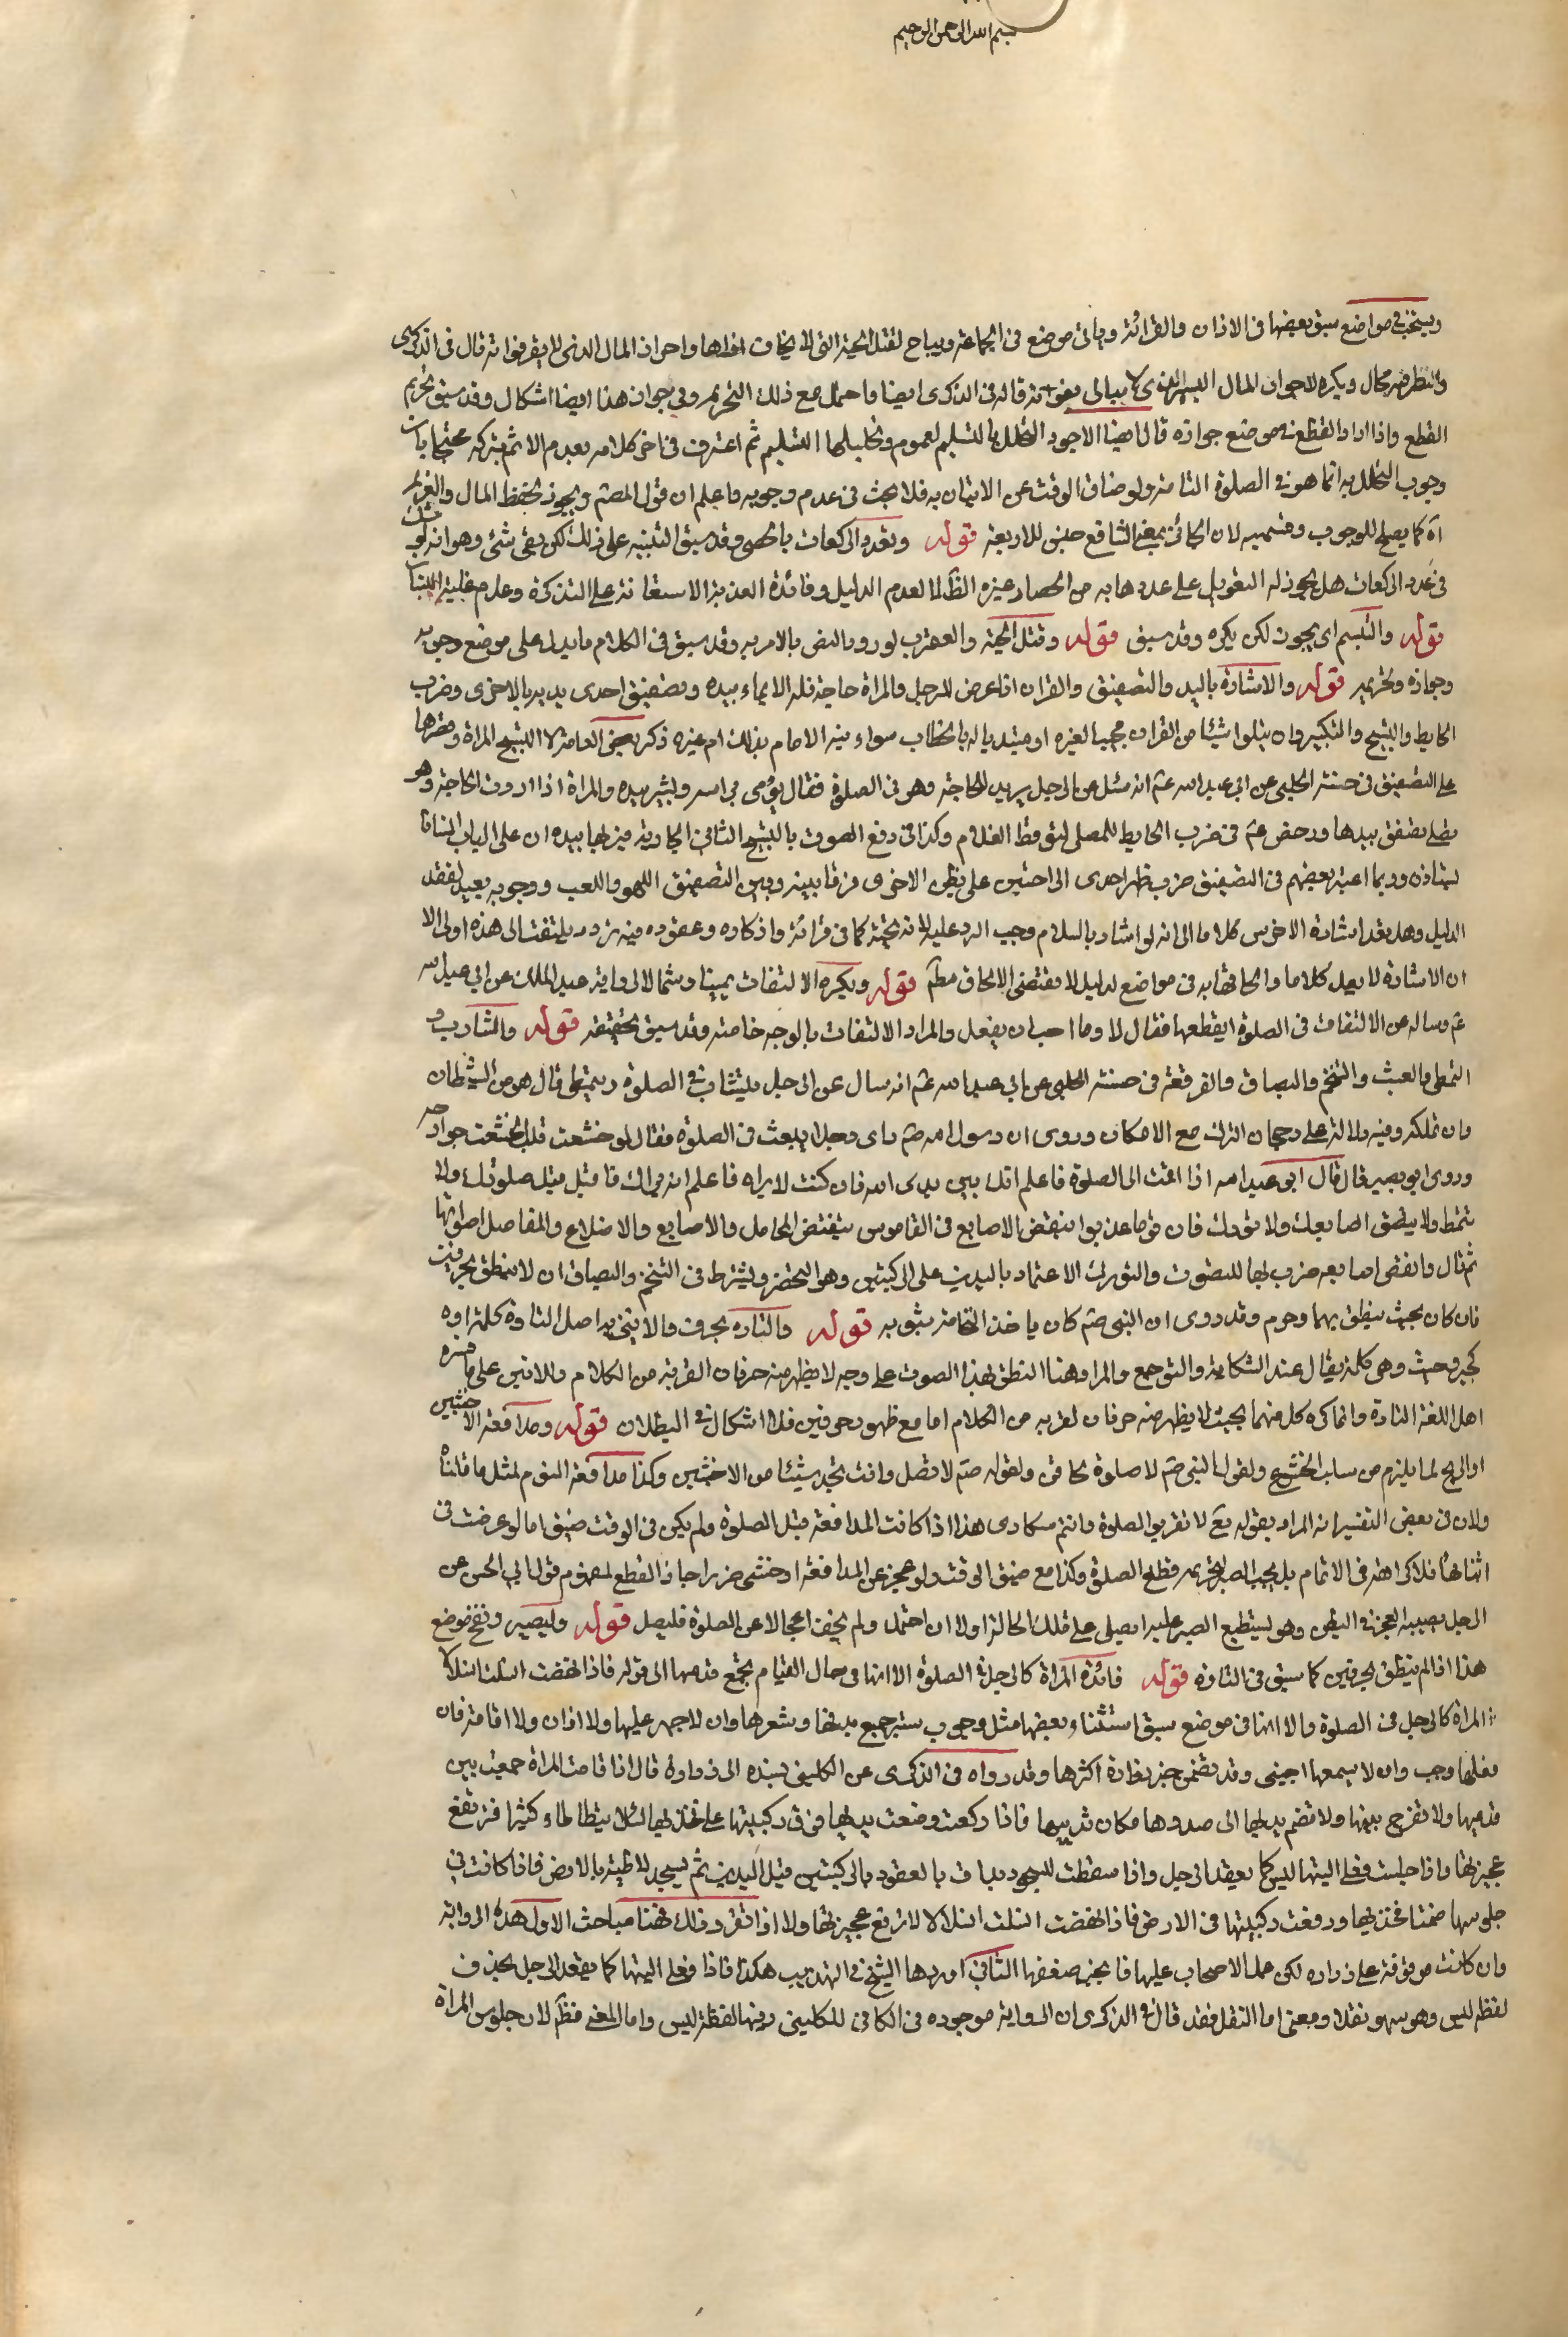 بسم الله الرحمن الرحيم
ويستحب في مواضع سبق بعضها في الاذان والقرائة وياتي موضع في الجماعة ويباح لقتل الحية التي لا يخاف اذاها واحراز المال الذي لا يضر فواته قال في الذكرى
والنظر فيه مجال ويكره لاحراز المال اليسير الذي لا يبالي بفواته قاله في الذكرى ايضا واحتمل مع ذلك التحريم وفي جواز هذا ايضا اشكال وقد سبق تحريم
القطع واذا اراد القطع في موضع جوازه قال ايضا الاجود التحلل بالتسليم لعموم وتحليلها التسليم ثم اعترف في اخر كلامه بعدم الاثم بتركه محتجا بان
وجوب التحلل به انما هو في الصلوة التامة ولو ضاق الوقت عن الاتيان به فلا بحث في عدم وجوبه واعلم ان قول المصنف ويجوز لحفظ المال والغريم
اه كما يصلح للوجوب وقسيميه لان الجائز بمعنى الشائع جنس للاربعة قوله وتعدد الركعات بالحصى وقد سبق التنبيه على ذلك لكن بقي شئ وهو انه لو شك
في عدد الركعات هل يجوز له التعويل على عددها به من الحصا وغيره الظاهر لا لعدم الدليل وفائدة العد به الاستعانة على التذكرة وعدم غلبة النسيان
قوله والتبسم اي يجوز لكن يكره وقد سبق قوله وقتل الحية والعقرب لورود النص بالامر به وقد سبق في الكلام ما يدل على موضع وجوبه
وجوازه وتحريمه قوله والاشارة باليد والتصفيق والقران اذا عرض للرجل والمراة حاجة فله الايماء بيده وتصفيق احدى يديه بالاخرى وضرب
الحايط والتسبيح والتكبير وان يتلوا شيئا من القران مجيبا لغيره او مبتديا له بالخطاب سواء نبه الامام بذلك ام غيره ذكر بعض العامة لا التسبيح المراة وقصرها
على التصفيق في حسنة الحلبي عن ابي عبد الله عم انه سئل عن الرجل يريد الحاجة وهو في الصلوة فقال يؤمى براسه ويشير بيده والمراة اذا ارادت الحاجة وهي
تصلي تصفق بيدها ورخص عم في ضرب الحايط للمصلي ليوقظ الغلام وكذا في رفع الصوت بالتسبيح لتاتي الجارية فيريها بيده ان على الباب انسانا
ليستاذن وربما اعتبر بعضهم في التصفيق ضرب ظهر احدى الراحتين على بطن الاخرى فرقا بينه وبين التصفيق اللهو واللعب ووجوبه بعيد لفقد
الدليل وهل يعد اشارة الاخرس كلاما الى انه لو اشار بالسلام وجب الرد عليه لانه تحية كما في قرائة واذكاره وعقوده فيه تردد يلتفت الى هذه اولى الا
ان الاشارة لا يعد كلاما والحاقها به في مواضع لدليل لا مقتضى لالحاق مطلقا قوله ويكره الالتفات يمينا وشمالا لرواية عبد الملك عن ابي عبد الله
عم وساله عن الالتفات في الصلوة ايقطعها فقال لا وما احب ان يفعل والمراد الالتفات بالوجه خاصة وقد سبق تحقيقه قوله والتثاوب و
التمطي والعبث والتنخم والبصاق والفرقعة في حسنة الحلبي عن ابي عبد الله عم انه سال عن الرجل يتثاوب في الصلوة ويتمطى قال هو من الشيطان
ولن تملكه وفيه دلالة على رجحان الترك مع الامكان وروى ان رسول الله صم راى رجلا يعبث في الصلوة فقال لو خشعت قلبه لخشعت جوارحه
وروى ابو بصير قال قال ابو عبد الله اذا قمت الى الصلوة فاعلم انك بين يدي الله فان كنت لا تراه فاعلم انه يراك فاقبل قبل صلوتك ولا
تتمط ولا ينقض اصابعك ولا تورك فان قوما عذبوا بنقض الاصابع في القاموس تنقض المحامل والاصابع والاضلاع والمفاصل اصواتها
ثم قال وانقض اصابعه ضرب بها لتصوت والتورك الاعتماد باليدين على الركبتين وهو التحضر ويشترط في التنخم والبصاق ان لا ينطق بحرفين
فان كان بحيث ينطق بهما وحرم وقد روى ان النبي صم كان ياخذ النخامة بثوبه قوله والتاوه بحرف والانين به اصل التاوه كلمة اوه
كجير وحيث وهي كلمة يقال عند الشكاية والتوجع والمراد هنا النطق بهذا الصوت على وجه لا يظهر منه حرفان القربة من الكلام والانين على ما فسره
اهل اللغة التاوه وانما كره كل منهما بحيث لا يظهر منه حرفان لقربه من الكلام اما مع ظهور حرفين فلا اشكال في البطلان قوله ومدافعة الاخبثين
او الريح لما يلزم من سلب الخشوع ولقول النبي صم لا صلوة لحاقن ولقوله صم لا تصل وانت تجد شيئا من الاخبثين وكذا مدافعة النوم لمثل ما قلناه
ولان في بعض التفسير انه المراد بقوله تع لا تقربوا الصلوة وانتم سكارى هذا اذا كانت المدافعة قبل الصلوة ولم يكن في الوقت ضيق اما لو عرضت في
اثنائها فلا كراهة في الاتمام بل يجب الصبر لتحريم قطع الصلوة وكذا مع ضيق الوقت ولو عجز عن المدافعة او خشى ضررا جاز القطع لمفهوم قول ابي الحسن عن
الرجل يصيبه الغمز في البطن وهو يستطيع الصبر عليه ايصلى على تلك الحالة او لا ان احتمل ولم يخف اعجالا عن الصلوة فليصل قوله وليصبر ونفخ موضع
هذا اذا لم ينطق بحرفين كما سبق في التاوه قوله فائدة المراة كالرجل في الصلوة الا انها في حال القيام تجمع قدميها الى قوله فاذا نهضت انسلت انسلالا
المراة كالرجل في الصلوة والا انها في موضع سبق استثناء بعضها مثل وجوب ستر جميع بدنها وشعرها وان لا جهر عليها ولا اذان ولا اقامة فان
فعلتها وجب وان لا يسمعها اجنبي وقد تضمن خبر زرارة اكثرها وقد رواه في الذكرى عن الكليني بسنده الى زرارة قال اذا قامت المراة جمعت بين
قدميها ولا تفرج بينها ولا تضم يديها الى صدرها مكان ثدييها فاذا ركعت وضعت يديها فوق ركبتيها على فخذيها لئلا يتطاطاء كثيرا فترتفع
عجيزتها واذا جلست فعلى اليتيها ليس كما يقعد الرجل واذا سقطت للسجود بدات بالقعود بالركبتين قبل اليدين ثم تسجد لاطية بالارض فاذا كانت في
جلوسها ضمت فخذيها ورفعت ركبتيها من الارض فاذا نهضت انسلت انسلالا لا ترفع عجيزتها ولا اذا تقرر ذلك فهنا مباحث الاول هذه الرواية
وان كانت موقوفة على زراره لكن عمل الاصحاب عليها فانجبر ضعفها الثاني اوردها الشيخ في التهذيب هكذا فاذا فعلى اليتيها كما يقعد الرجل بحذف
لفظة ليس وهو سهو نقلا ومعنى اما النقل فقد قال في الذكرى ان الرواية موجوده في الكافي للكليني وفيها لفظة ليس واما المعنى فظاهر لان جلوس المراة